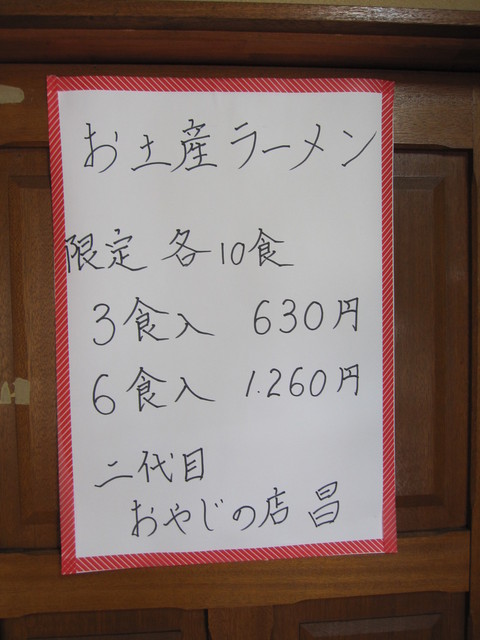 お土産ラーメン
限定 各10食
3食入 630円
6食入 1.260円
二代目
おやじの店 昌